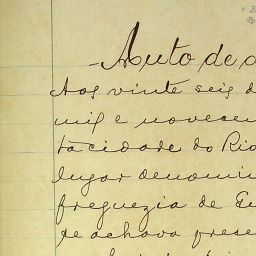 - Auto de d
Aos vinte seis d
mil e novecen
ta cidade do Rio
lugar denomin
freguezia de Gu
se achava prese